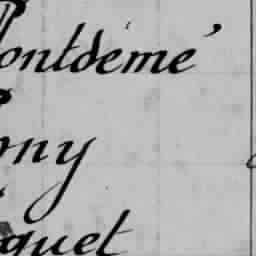 ontdemé
ony
quet